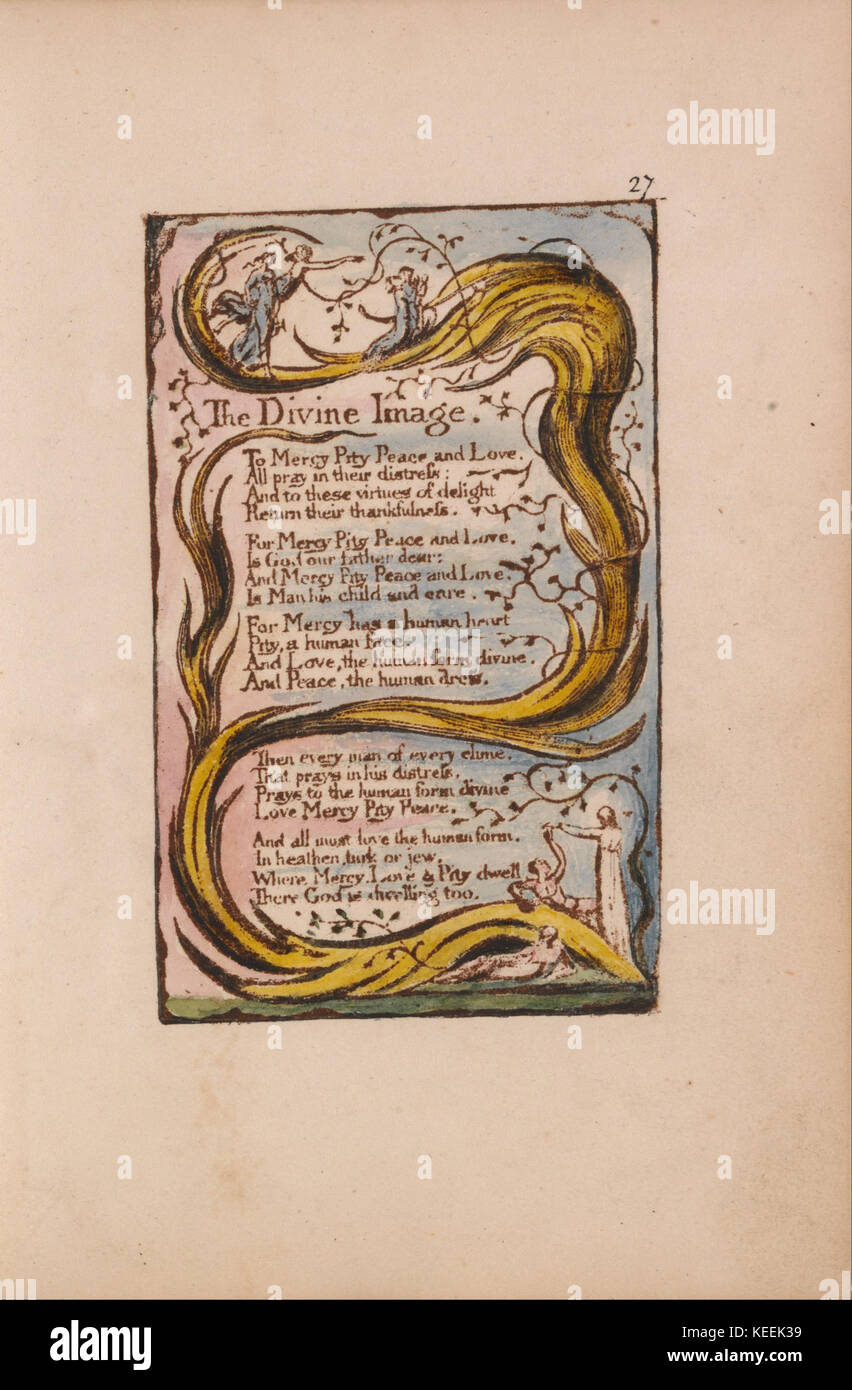 27
The Divine Image.
To Mercy Pity Peace and Love.
All pray in their distreſs:
And to these virtues of delight
Return their thankfulneſs.
For Mercy Pity Peace and Love.
Is God our father dear:
And Mercy Pity Peace and Love.
Is Man his child and care.
For Mercy has a human heart
Pity, a human face:
And Love, the human form divine.
And Peace, the human dress.
Then every man of every clime.
That prays in his distreſs.
Prays to the human form divine
Love Mercy Pity Peace.
And all must love the human form.
In heathen, turk or jew.
Where Mercy, Love & Pity dwell
There God is dwelling too.
alamy
alamy stock photo
KEEK39
www.alamy.com